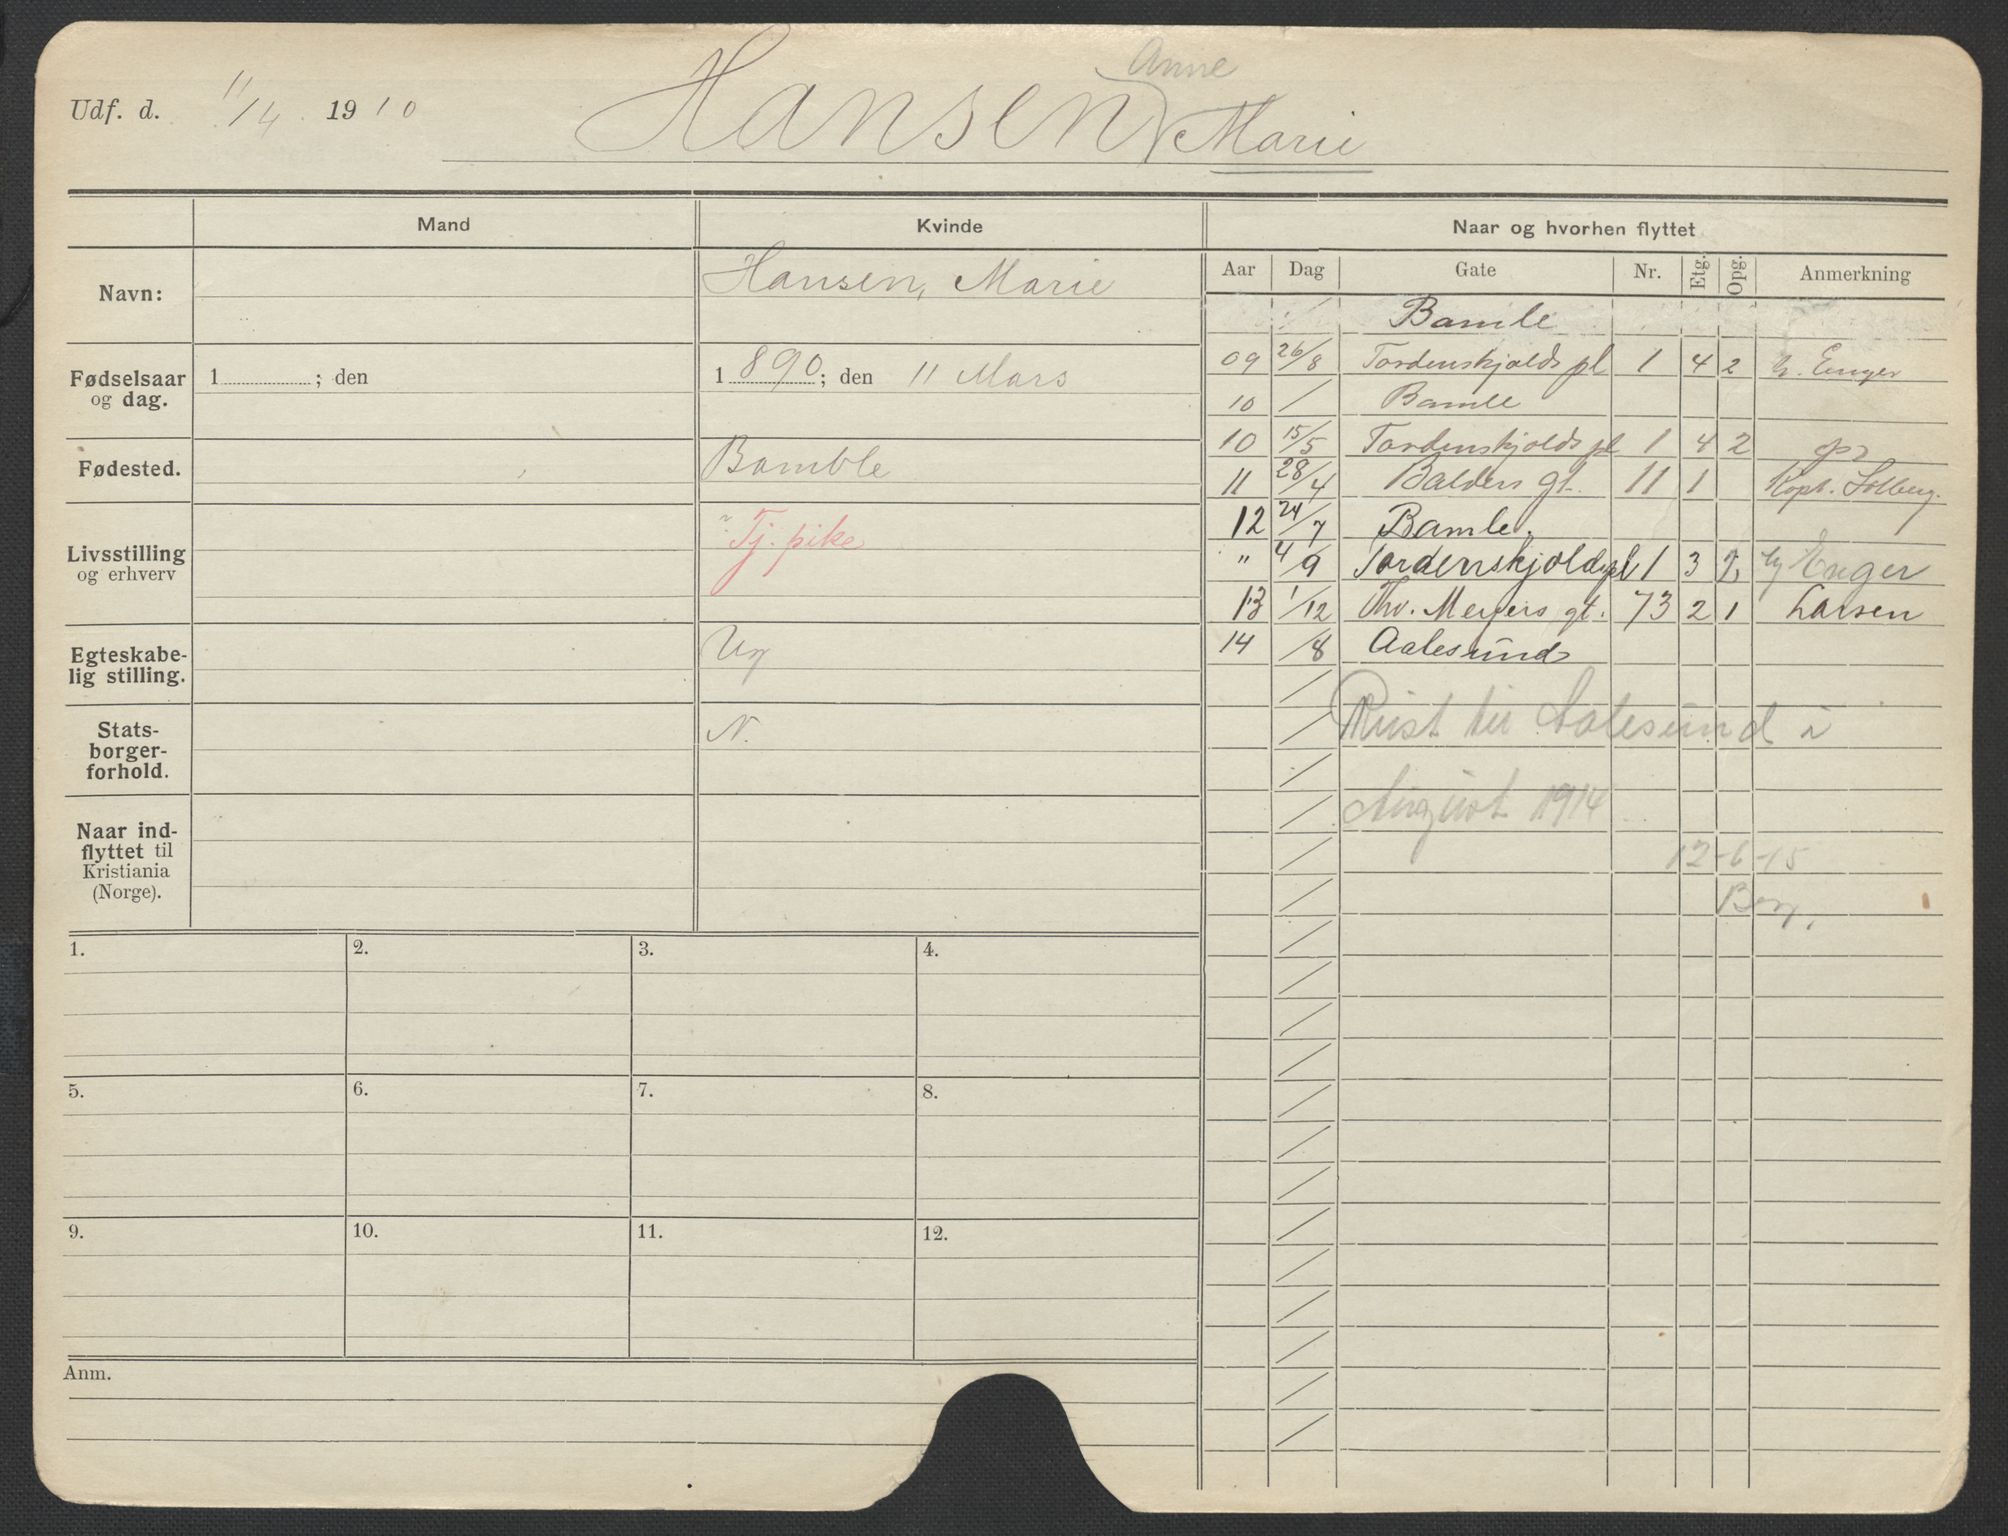 Udf. d. 11/4 1910 Hansen, Anne Marie
Mand Kvinde Naar og hvorhen flyttet
Aar Dag Gate Nr. Etg. Opg. Anmerkning
Navn: Hansen, Marie
Fødselsaar og dag. 1 ; den 1890; den 11 Mars
Fødested. Bamble
Livsstilling og erhverv Tj. pike
Egteskabe-
lig stilling. Ug
Stats-
borger-
forhold. N.
Naar ind-
flyttet til
Kristiania
(Norge).
Bamle
09 26/8 Tordenskjolds pl 1 4 2 Enger
10 / Bamle
10 15/5 Tordenskjolds pl 1 4 2
11 28/4 Balders gt. 11 1 Kapt. Solberg.
12 24/7 Bamle.
" 4/9 Tordenskjoldspl 1 3 2 Enger
13 1/12 Thv. Meyers gt. 73 2 1 Larsen
14 /8 Aalesund
Reist til Aalesund i
August 1914
12-6-15
Berg.
1. 2. 3. 4.
5. 6. 7. 8.
9. 10. 11. 12.
Anm.